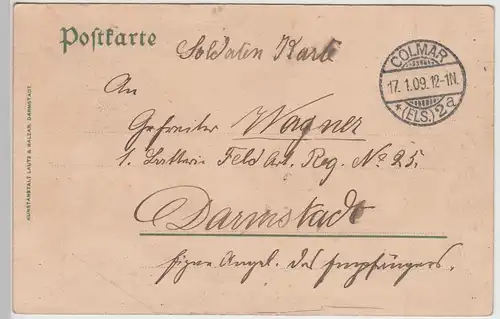 Postkarte
Soldaten Karte
COLMAR
17.1.09.12-1N.
* (ELS.) 2a
An
Gefreiter Wagner
1. Batterie Feld Art. Reg. No 25.
Darmstadt
Eigne Angel. des Empfängers.
KUNSTANSTALT LAUTZ & BALZAR, DARMSTADT.